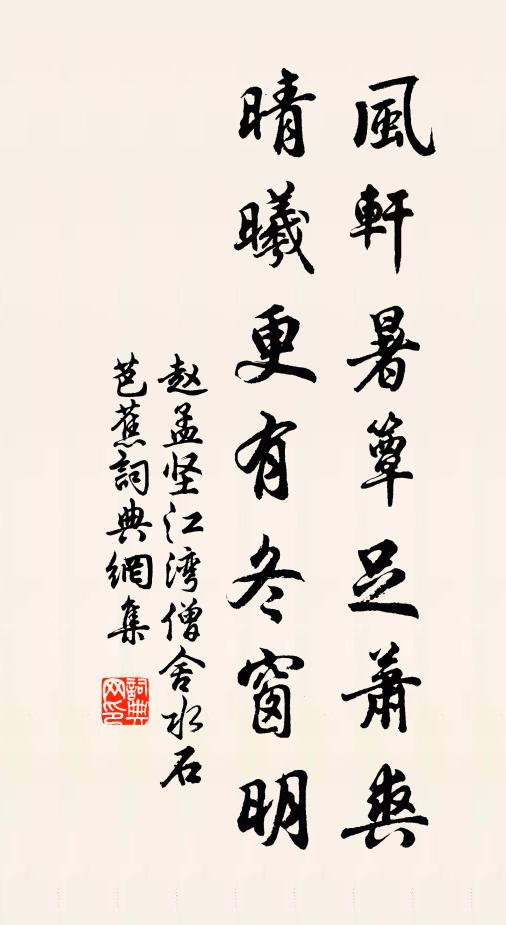 風軒暑簟足萧爽
晴曦更有冬窗明
赵孟坚江湾僧舍水石
芭蕉詞典網集
詞典
网印